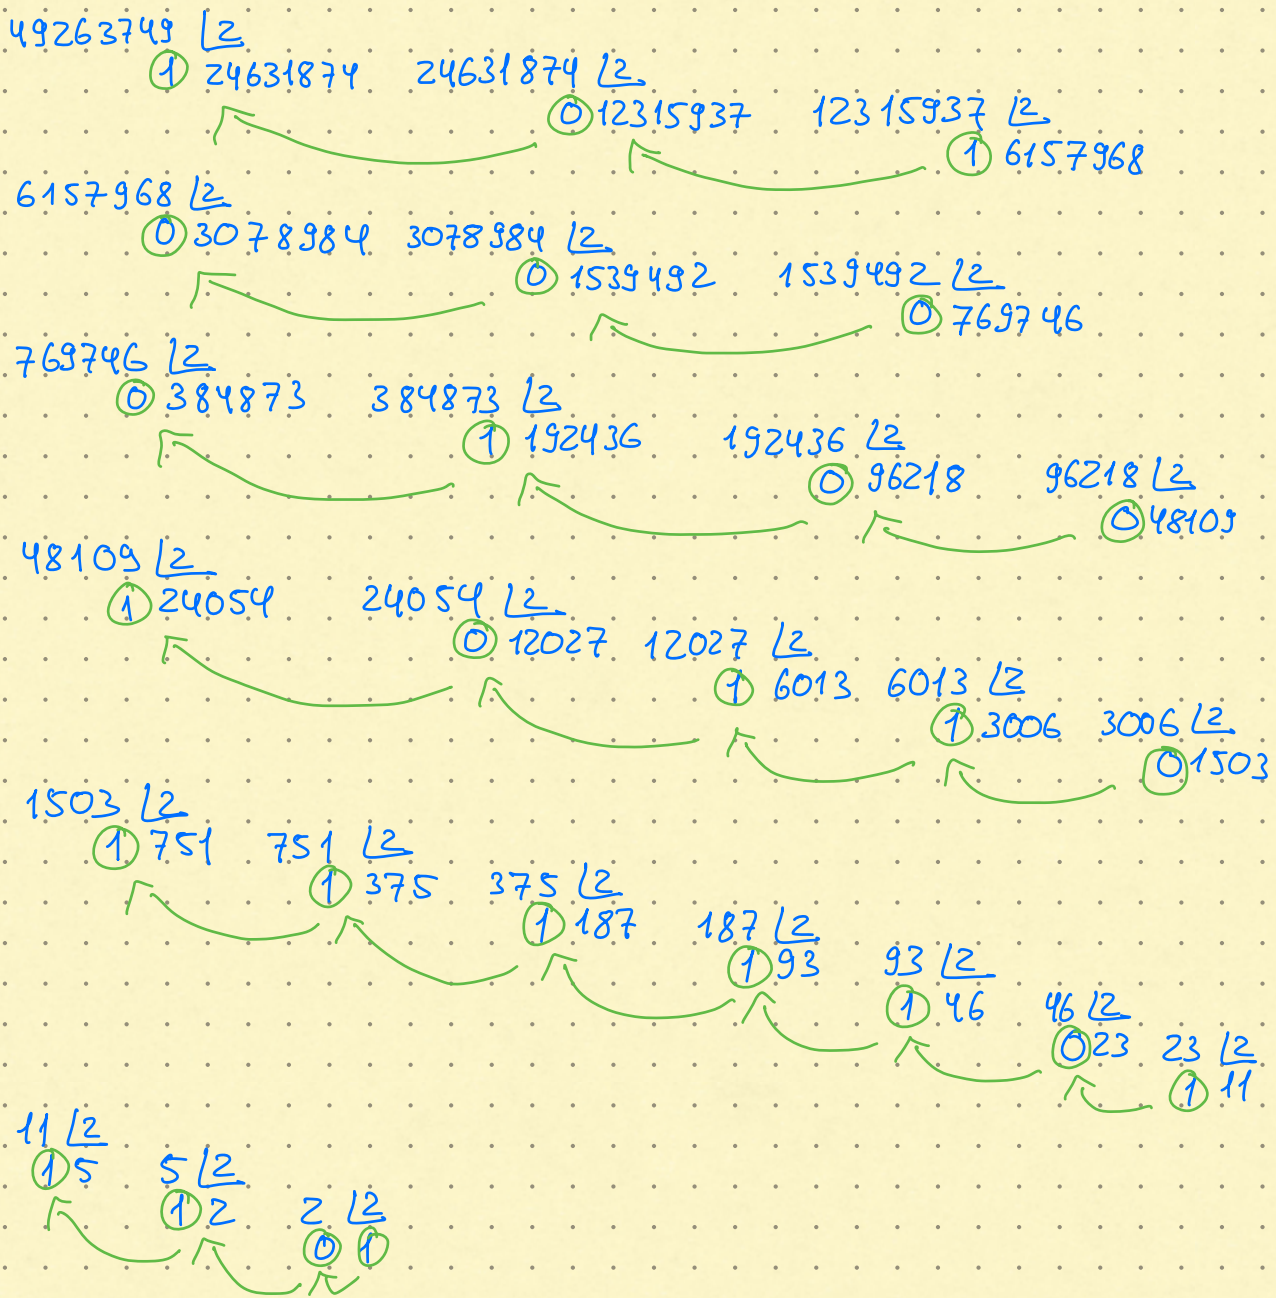 49263749 2
1 24631874 24631874 2
0 12315937 12315937 2
1 6157968
6157968 2
0 3078984 3078984 2
0 1539492 1539492 2
0 769746
769746 2
0 384873 384873 2
1 192436 192436 2
0 96218 96218 2
0 48109
48109 2
1 24054 24054 2
0 12027 12027 2
1 6013 6013 2
1 3006 3006 2
0 1503
1503 2
1 751 751 2
1 375 375 2
1 187 187 2
1 93 93 2
1 46 46 2
0 23 23 2
1 11
11 2
1 5 5 2
1 2 2 2
0 1